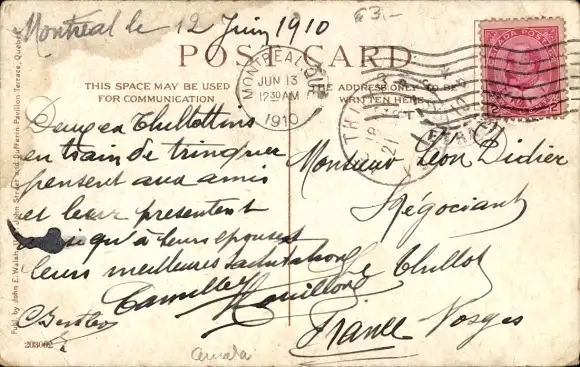 Montréal le 12 Juin 1910
63.-
POST CARD
THIS SPACE MAY BE USED
FOR COMMUNICATION
THE ADDRESS ONLY TO BE
WRITTEN HERE
MONTREAL QUE
JUN 13
12 30 AM
1910
CANADA POSTAGE
2
2
Deux Thillottins
en train de trinquer
pensent aux amis
et leur présentent
ainsi qu'à leurs épouses
leurs meilleures salutations
Camille
Monsieur Léon Didier
Négociant
Thillot
France Vosges
203002
Canada
Publ. by John E. Walsh, John Street and Dufferin Pavilion Terrace, Quebec